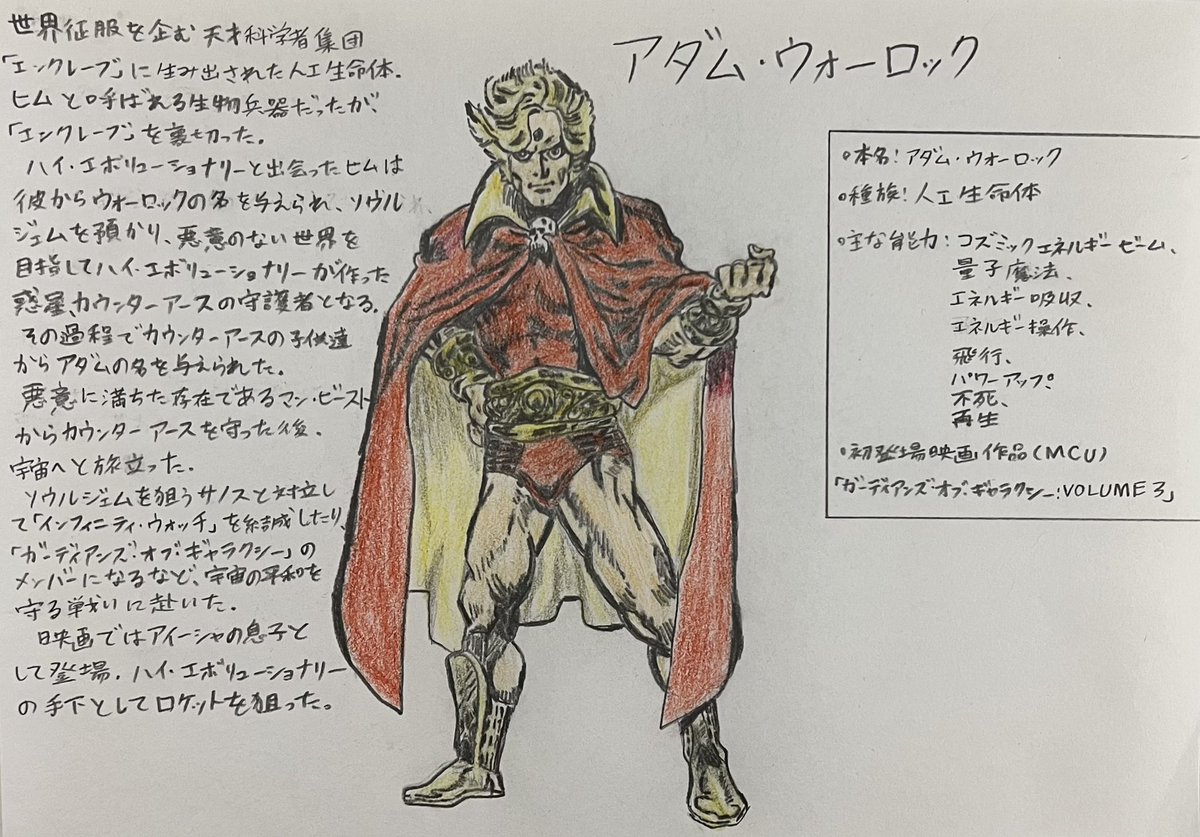 アダム・ウォーロック
世界征服を企む天才科学者集団
「エンクレーブ」に生み出された人工生命体.
ヒムと呼ばれる生物兵器だったが、
「エンクレーブ」を裏切った.
ハイ・エボリューショナリーと出会ったヒムは
彼からウォーロックの名を与えられ、ソウル
ジェムを預かり、悪意のない世界を
目指してハイ・エボリューショナリーが作った
惑星、カウンターアースの守護者となる.
その過程でカウンターアースの子供達
からアダムの名を与えられた.
悪意に満ちた存在であるマン・ビースト
からカウンターアースを守った後、
宇宙へと旅立った.
ソウルジェムを狙うサノスと対立し
て「インフィニティ・ウォッチ」を結成したり、
「ガーディアンズ・オブ・ギャラクシー」の
メンバーになるなど、宇宙の平和を
守る戦いに赴いた.
映画ではアイーシャの息子と
して登場. ハイ・エボリューショナリー
の手下としてロケットを狙った。
・本名: アダム・ウォーロック
・種族: 人工生命体
・主な能力: コズミックエネルギービーム、
量子魔法、
エネルギー吸収、
エネルギー操作、
飛行、
パワーアップ、
不死、
再生
・初登場映画作品(MCU)
「ガーディアンズ・オブ・ギャラクシー:VOLUME3」